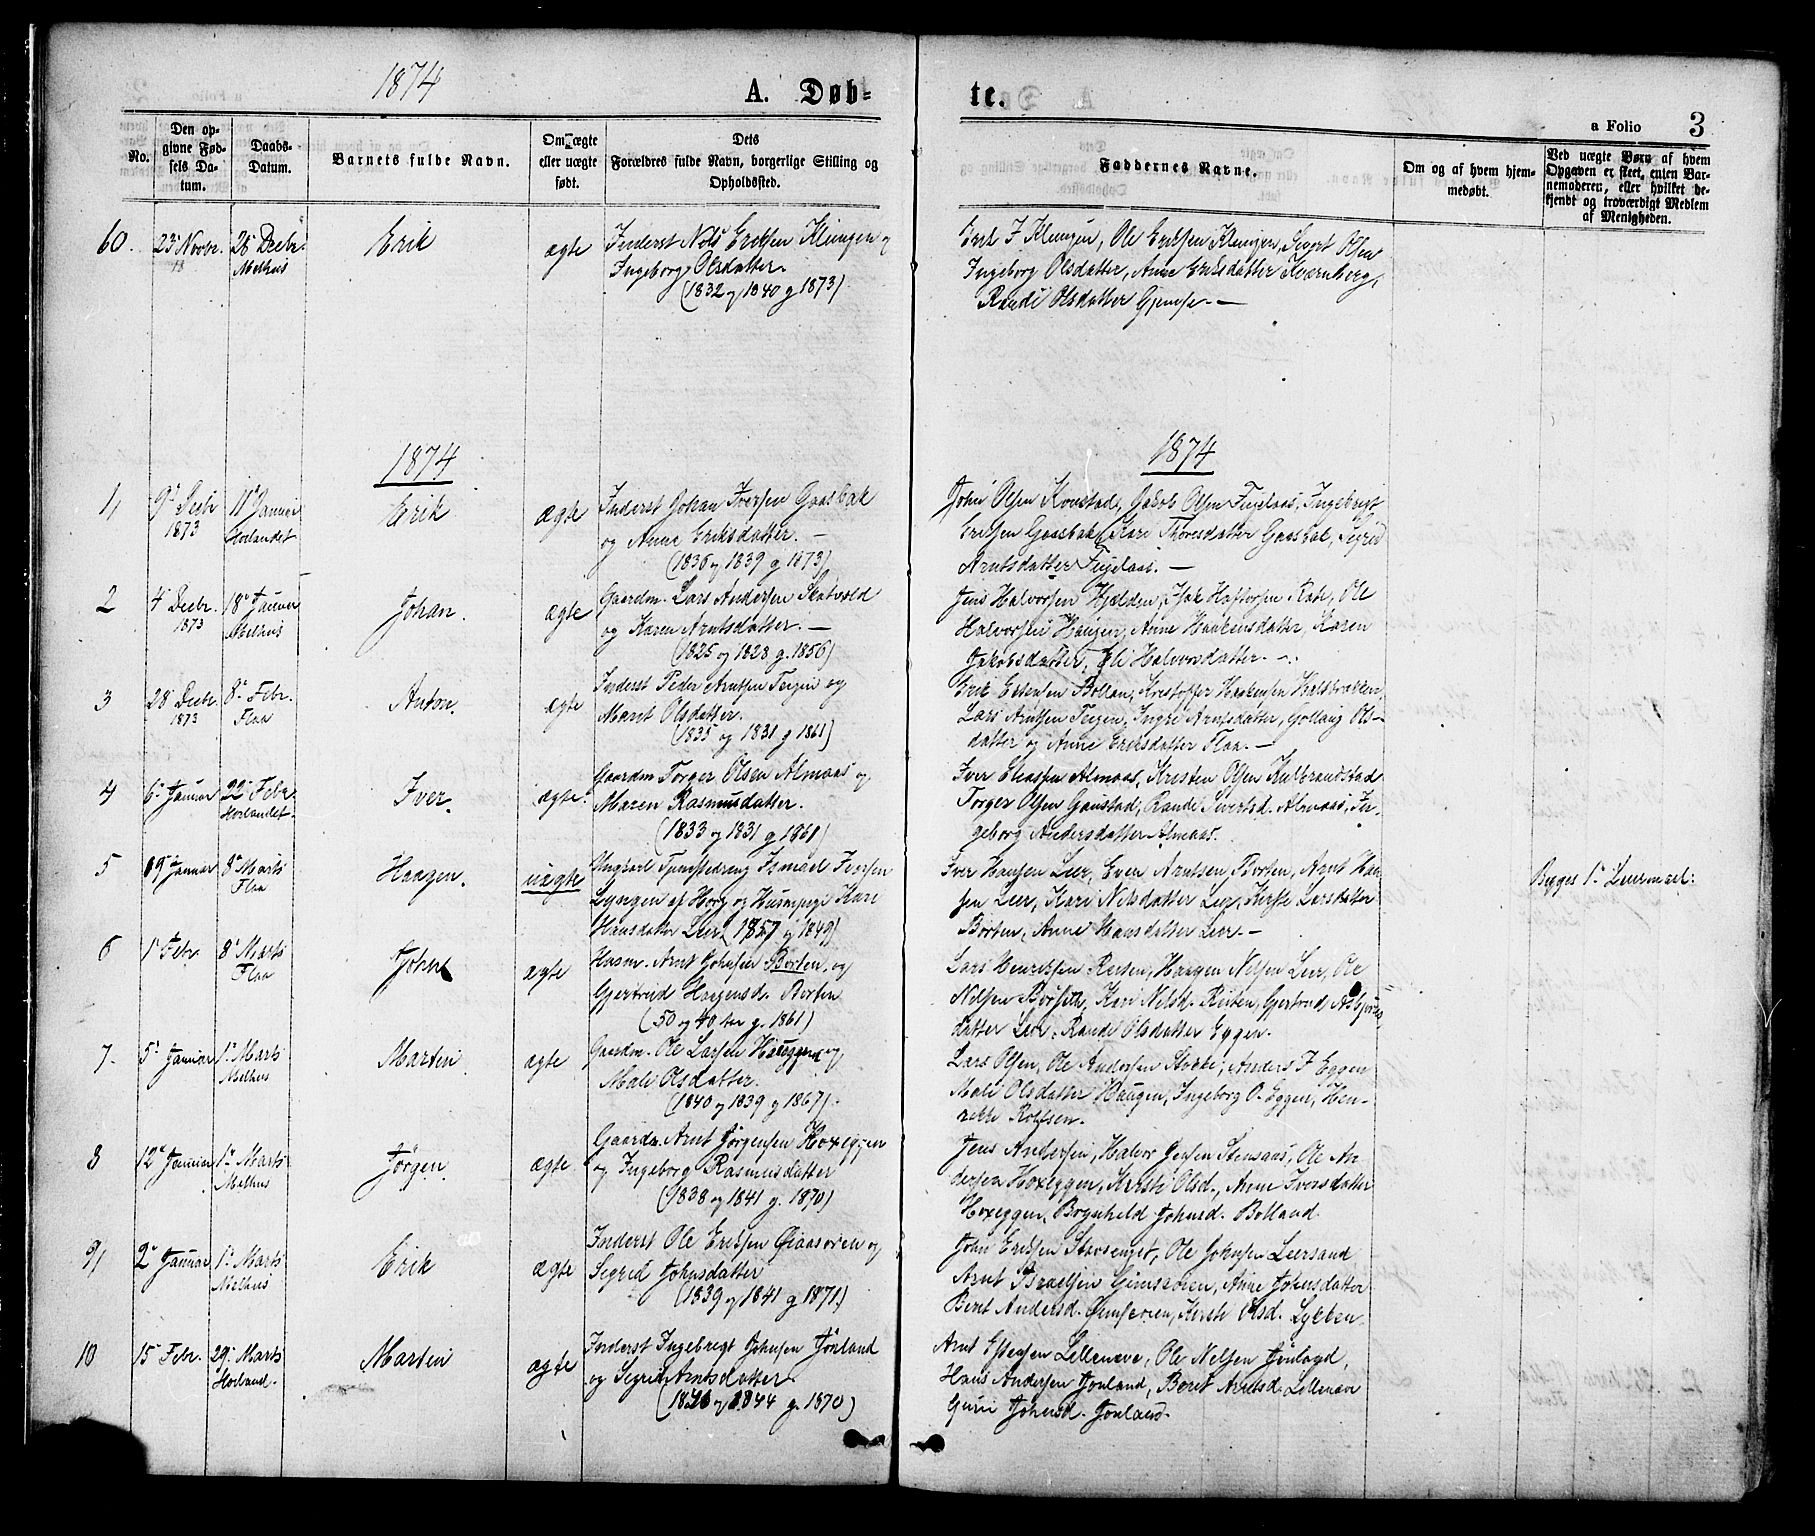 1874
A. Døb-
te.
a Folio 3
No.
Den op-
givne Fød-
sels Da-
tum.
Daabs-
Datum.
Barnets fulde Navn.
Om ægte
eller uægte
født.
Dets
Forældres fulde Navn, borgerlige Stilling og
Opholdssted.
Faddernes Navne.
Om og af hvem hjem-
medøbt.
Ved uægte Børn af hvem
Opgaven er skeet, enten Bar-
nemoderen, eller hvilket be-
kjendt og troværdigt Medlem
af Menigheden.
60. 23 Novbr. 26 Decbr. Melhus Erik ægte
Inderst Nils Eriksen Klungen og
Ingeborg Olsdatter.
(1832 og 1840 g 1873)
Erik J Klungen, Ole Eriksen Klungen, Sivert Olsen
Ingeborg Olsdatter, Anne Eriksdatter Kvernberg,
Randi Olsdatter Gjemse. —
1874
1874
1, 9de Decbr 1873 11te Januar Horlandet Erik ægte
Inderst Johan Iversen Gaasbak
og Anne Eriksdatter. —
(1836 og 1839 g 1873)
John Olsen Kovstad, Jakob Olsen Fuglaas, Ingebrigt
Eriksen Gaasbak, Kari Thoresdatter Gaasbak, Sigrid
Arntsdatter Fuglaas. —
2 4 Decbr. 1873 18de Januar Melhus Johan. ægte
Gaardm. Lars Andersen Skatvold
og Karen Arntsdatter. —
(1825 og 1828 g. 1856)
Jens Halvorsen Kjelden, Isak Haftorsen Rate, Ole
Halvorsen Haugen, Anne Haakensdatter, Karen
Jakobsdatter, Eli Halvorsdatter. —
3 28 Decbr 1873 8de Febr. Flaa Anton. ægte
Inderst Peder Arntsen Teigen og
Marit Olsdatter.
(1835 og 1831 g 1861)
Erik Estensen Bollan, Kristoffer Haakensen
Lars Arntsen Teigen, Ingri Arntsdatter, Gollaug Ols-
datter og Anne Eriksdatter Flaa. —
4 6te Januar 22de Febr. Horlandet. Iver. ægte.
Gaardm Torger Olsen Almaas og
Maren Rasmusdatter.
(1833 og 1831 g 1861)
Iver Almaas, Kristen Olsen Kulbrandstad
Torger Olsen Gaustad, Randi Sivertsd. Almaas, In-
geborg Andersdatter Almaas.
5 19 Januar 8de Marts Flaa Haagen. uægte
Ungkarl Tjenestedreng Ismael Iversen
Lyngen af Horg og Huusmpige Kari
Hansdatter Leer (1857 og 1849)
Iver Hansen Leer, Even Arntsen Borten, Arnt Han-
sen Leer, Kari Nilsdatter Leer, Kirsti Larsdatter
Borten, Anne Hansdatter Leer. —
Begges 1ste Leiermaal:
6 1ste Febr. 8de Marts Flaa John ægte
Husm. Arnt Johnsen Borten, og
Gjertrud Haagensd. Borten
(50 og 40 aar g. 1861)
Lars Henriksen Reiten, Haagen Nilsen Leer, Ole
Nilsen Borseth, Kari Nilsd. Reiten, Gjertrud Asbjørns-
datter Leer, Randi Olsdatter Eggen.
7. 5te Januar 1ste Marts Melhus Marten ægte
Gaardm. Ole Larsen Haugen og
Mali Olsdatter.
(1840 og 1839 g 1867).
Lars Olsen, Ole Andersen Stokke, Anders J Eggen
Mali Olsdatter Haugen, Ingeborg O. Eggen, Hen-
rikke Rolfsen.
8 12te Januar 1ste Marts Melhus Jørgen. ægte
Gaardm. Arnt Jørgensen Hoxeggen
og Ingeborg Rasmusdatter
(1838 og 1841 g. 1870)
Jens Andersen, Halvor Jensen Stensaas, Ole An-
dersen Hoxeggen, Kirsti Olsd., Anne Iversdatter
Hoxeggen, Bognheld Johnsd. Bolland
9, 2den Januar 1ste Marts Melhus Erik ægte
Inderst Ole Eriksen Øiaasøien og
Segred Johnsdatter
(1839 og 1841 g 1871.)
John Eriksen Stavsenget, Ole Johnsen Leersand
Arnt Israelsen Gimsøien, Anne Johnsdatter
Beret Andersd. Gimsøien, Kirsti Olsd. Lykken
10 15 Febr. 29de Marts Horland. Marten ægte
Inderst Ingebregt Johnsen Jönland
og Segred Arntsdatter.
(1846 og 1844 g. 1870)
Arnt Estensen Lilleneve, Ole Nelsen Jönland,
Hans Andersen Jonland, Beret Arntsd. Lilleneve
Guri Johnsd. Jonland.